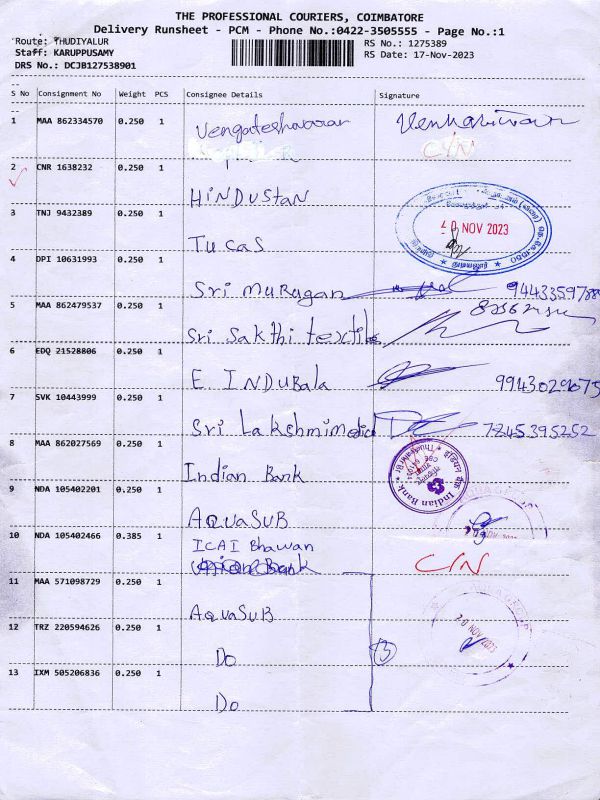 THE PROFESSIONAL COURIERS, COIMBATORE
Delivery Runsheet - PCM - Phone No.:0422-3505555 - Page No.:1
Route: THUDIYALUR
Staff: KARUPPUSAMY
DRS No.: DCJB127538901
RS No.: 1275389
RS Date: 17-Nov-2023
S No Consignment No Weight PCS Consignee Details Signature
1 MAA 862334570 0.250 1 Vengateshwaran
C/N
2 CNR 1638232 0.250 1 HiNDUStaN
3 TNJ 9432389 0.250 1 TUCAS
NOV 2023
4 DPI 10631993 0.250 1 Sri MURUgan
5 MAA 862479537 0.250 1 Sri Sakthi textile
6 EDQ 21528806 0.250 1 E INDUBala 9943029675
7 SVK 10443999 0.250 1 Sri Lakshmi 7245395252
8 MAA 862027569 0.250 1 Indian Bank
Indian Bank
9 NDA 105402201 0.250 1 AQUASUB
10 NDA 105402466 0.385 1 ICAI Bhawan
Bank C/N
11 MAA 571098729 0.250 1 AQUASUB
20 NOV 2023
12 TRZ 220594626 0.250 1 Do
13 IXM 505206836 0.250 1 Do